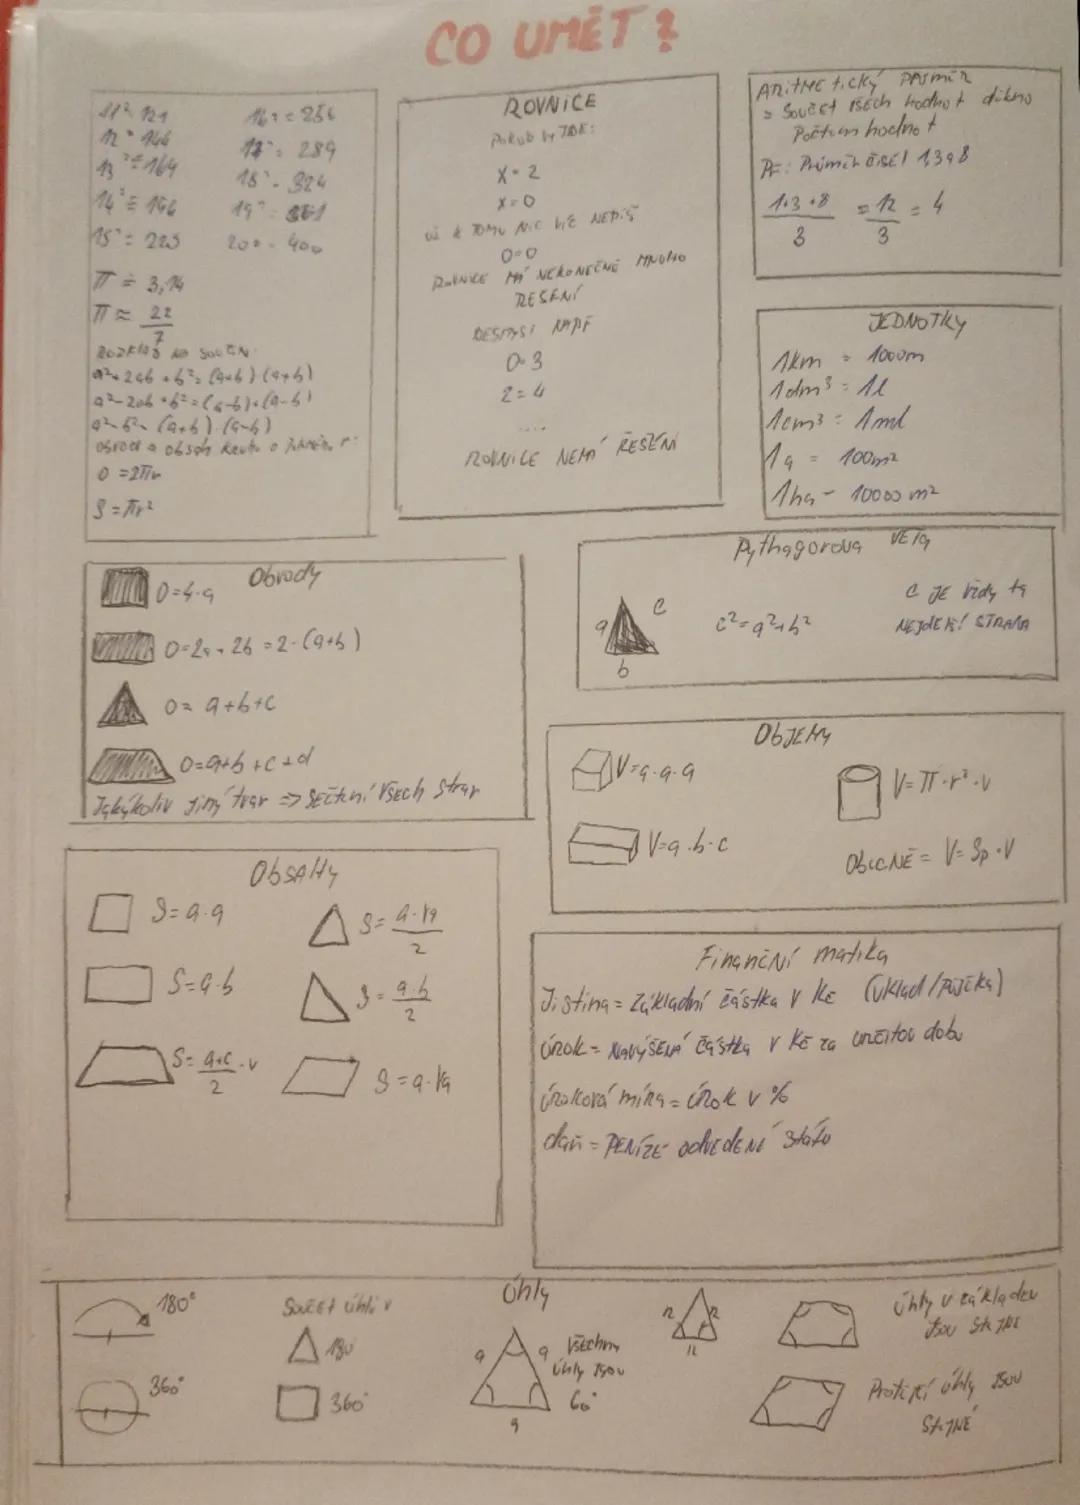 CO UMĚT?
11² 121
16² = 256
12² 144
17² = 289
13² = 169
18² = 324
14² = 196
19² = 361
15² = 225
20² = 400
π ≐ 3,14
π ≈ 22/7
ROZKLAD NA SOUČIN:
a²+2ab+b² = (a+b)(a+b)
a²-2ab+b² = (a-b)·(a-b)
a²-b² = (a+b)·(a-b)
obvod a obsah kruhu o r:
O = 2πr
S = πr²
ROVNICE
POKUD VYJDE:
X = 2
X = 0
K TOMU NIC VÍC NEPIŠ
0=0
ROVNICE MÁ NEKONEČNĚ MNOHO
ŘEŠENÍ
0=3
2=4
....
ROVNICE NEMÁ ŘEŠENÍ
ARITMETICKÝ PRŮMĚR
= SOUČET VŠECH hodnot děleno
Počtem hodnot
Př: Průměr čísel 1,3 a 8
1+3+8/3 = 12/3 = 4
JEDNOTKY
1km = 1000m
1dm³ = 1l
1cm³ = 1ml
1a = 100m²
1ha = 10000 m²
Obvody
O=4·a
O=2a+2b=2·(a+b)
O= a+b+c
O=a+b+c+d
Jakýkoliv jiný tvar => sečtení všech stran
Pythagorova VĚTA
a
c
b
c²=a²+b²
C JE vždy ta
NEJDELŠÍ STRANA
OBJEMY
V=a·a·a
V=π·r²·v
V=a·b·c
OBECNĚ = V=Sp·V
ObSAHy
S=a·a
S= a·va/2
S=a·b
S= a·b/2
S= a+c/2 ·v
S=a·va
Finanční matika
Jistina = Základní částka v Kč (vklad/půjčka)
úrok = NAVÝŠENÁ částka v Kč za určitou dobu
úroková míra = úrok v %
daň = PENÍZE odvedené státu
Úhly
180°
360°
SOUČET úhlů v
180
360°
a
a
a
Všechny
úhly jsou
60°
úhly v základu
jsou STEJNÉ
Protější úhly jsou
STEJNÉ